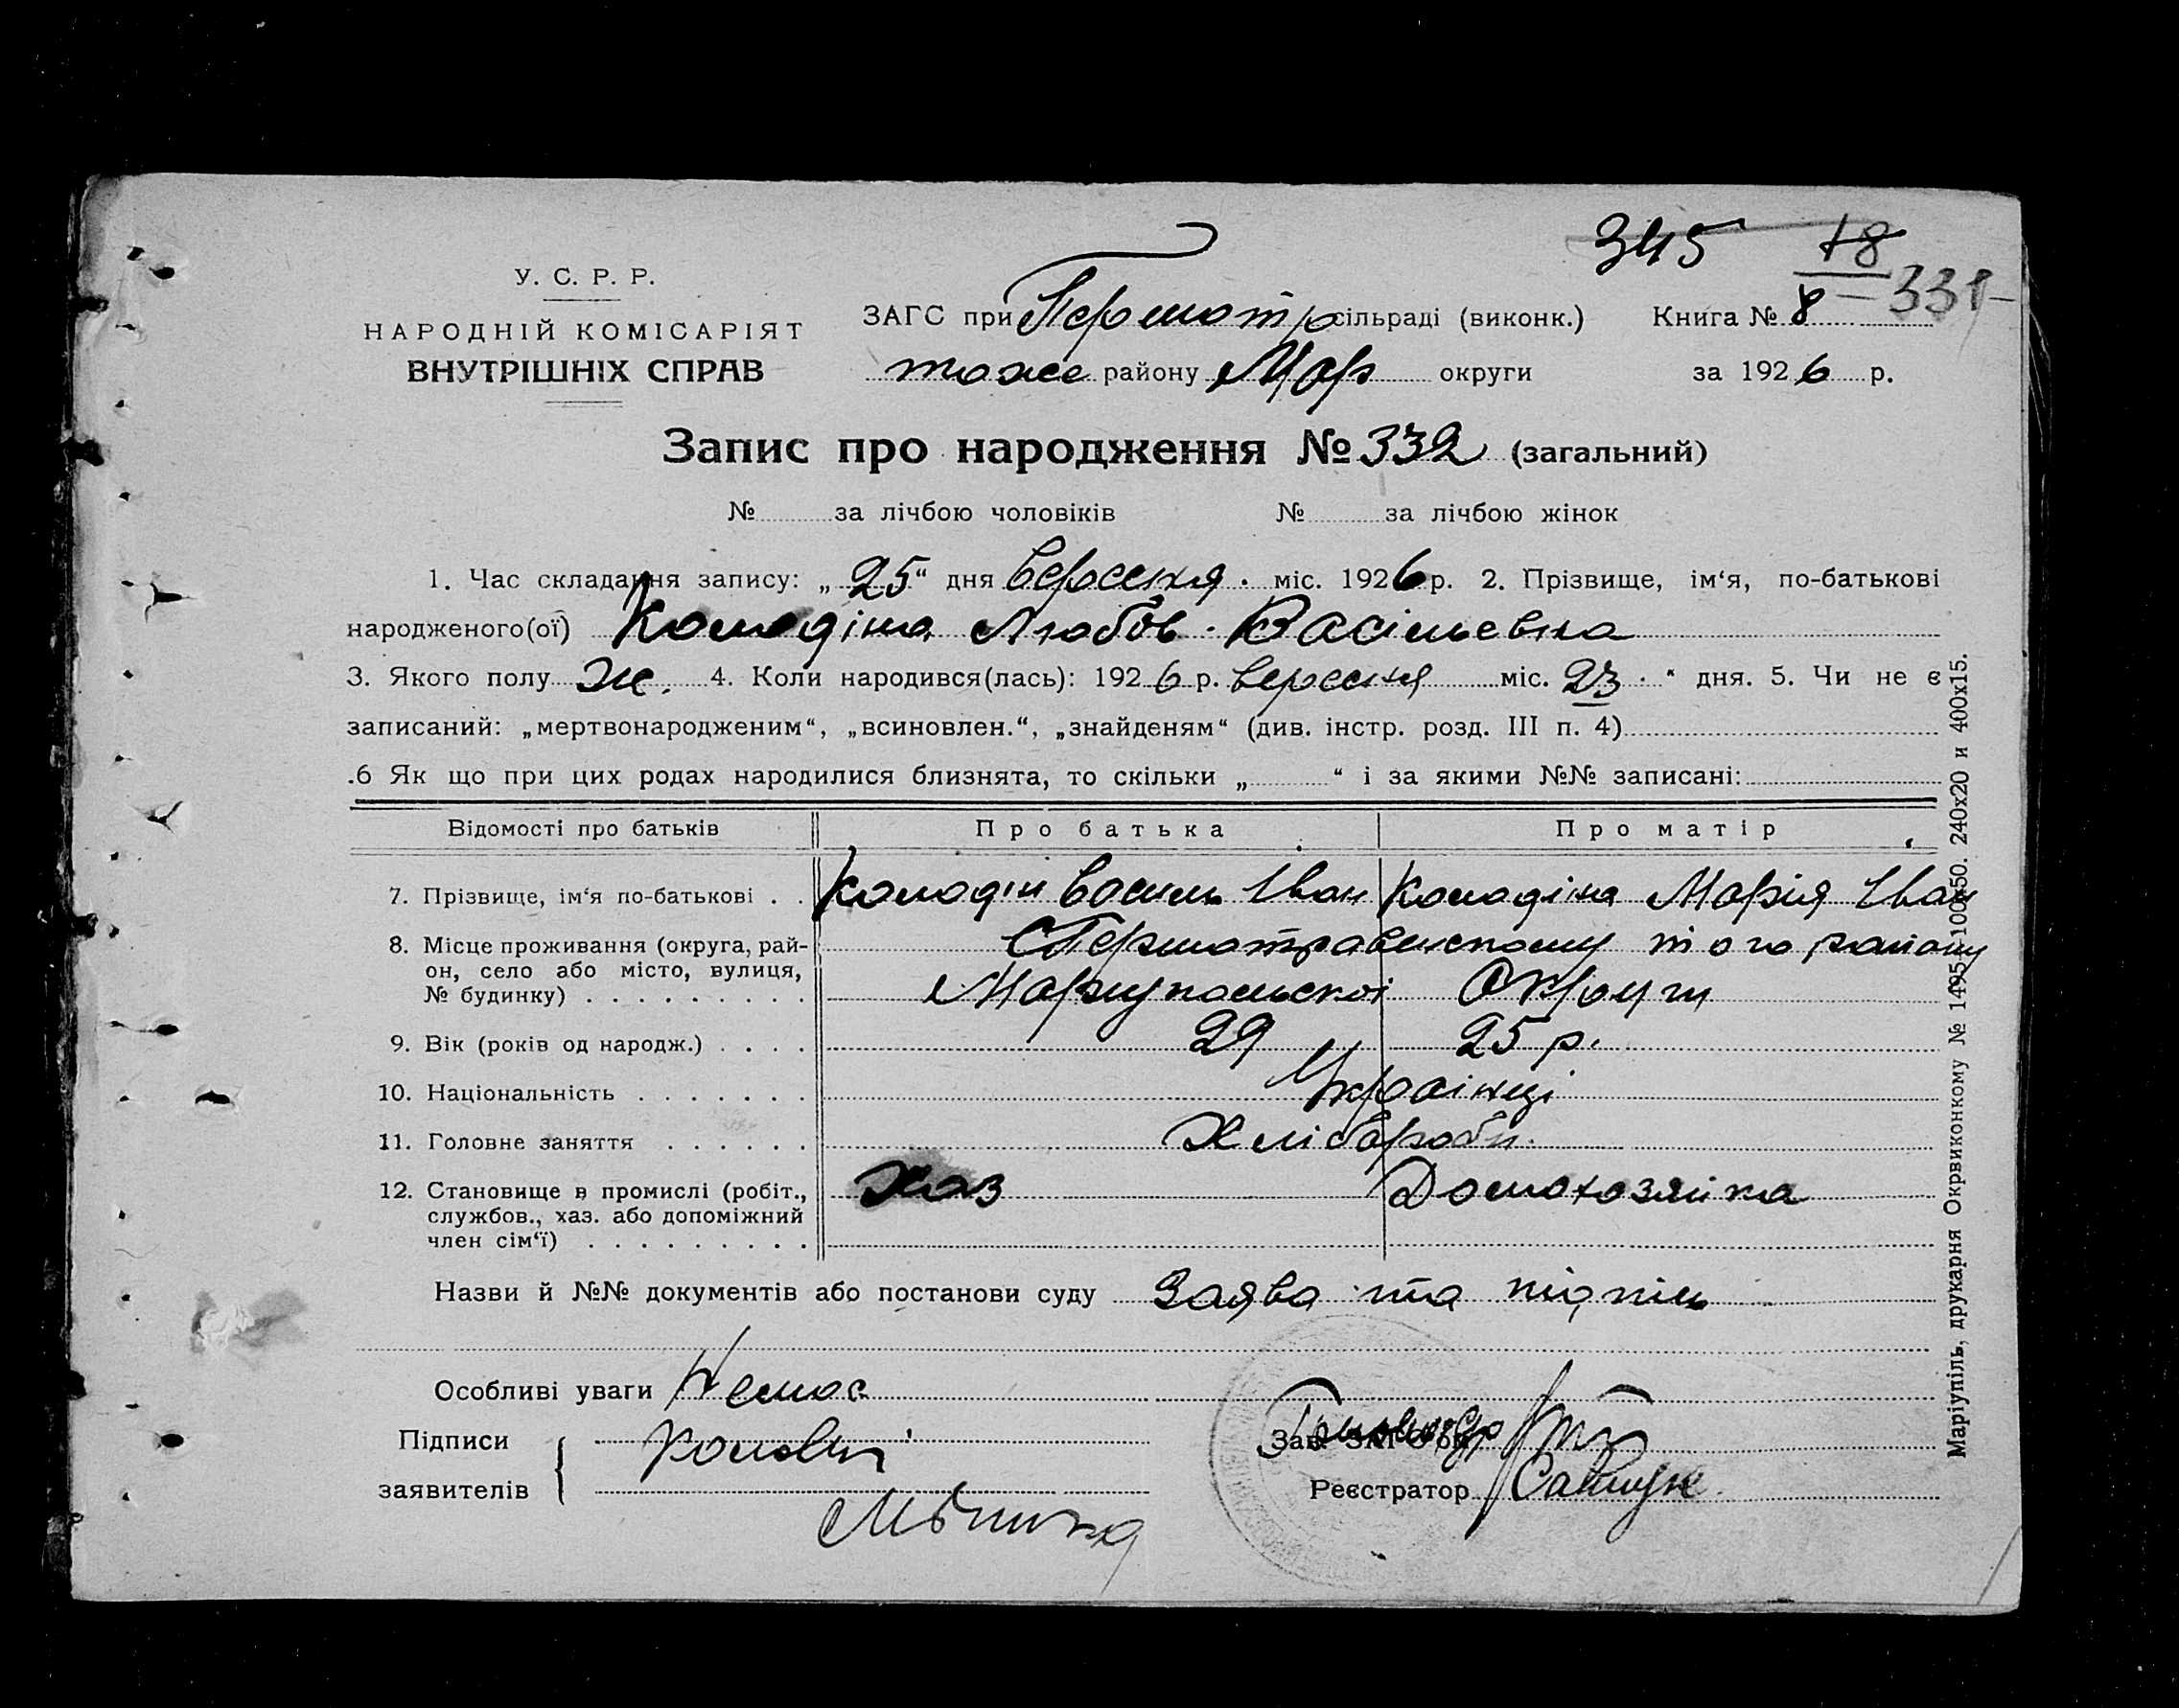 345 18
У. С. Р. Р.
ЗАГС при Першотр сільраді (виконк.) Книга № 8 – 331 –
НАРОДНІЙ КОМІСАРІЯТ
ВНУТРІШНІХ СПРАВ
тоже району Мар округи за 1926 р.
Запис про народження № 332 (загальний)
№ за лічбою чоловіків № за лічбою жінок
1. Час складання запису: „25“ дня вересня міс. 1926 р. 2. Прізвище, ім‘я, по-батькові
народженого(ої) Колодіна Любов Васільевна
3. Якого полу Ж. 4. Коли народився(лась): 1926 р. вересня міс. 23 “ дня. 5. Чи не є
записаний: „мертвонародженим“, „всиновлен.“, „знайденям“ (див. інстр. розд. III п. 4)
.6 Як що при цих родах народилися близнята, то скільки „ “ і за якими №№ записані:
Відомості про батьків Про батька Про матір
7. Прізвище, ім‘я по-батькові . . Колодін Василь Іван Колодіна Марія Іван
8. Місце проживання (округа, рай- С Першотравенському того району
он, село або місто, вулиця,
№ будинку) . . . . . . . . . Маріупольскої Округи
9. Вік (років од народж.) . . . . 29 25 р.
10. Національність . . . . . . . Українці
11. Головне заняття . . . . . . Хлібароби
12. Становище в промислі (робіт., Хаз Домохозяйка
службов., хаз. або допоміжний
член сім‘ї) . . . . . . . . .
Назви й №№ документів або постанови суду Заява та підпіс
Особливі уваги Немає
Підписи
заявителів
Зав. ЗАГС‘ом
Реєстратор
Маріупіль, друкарня Окрвиконкому № 1495-100х50. 240х20 и 400х15.